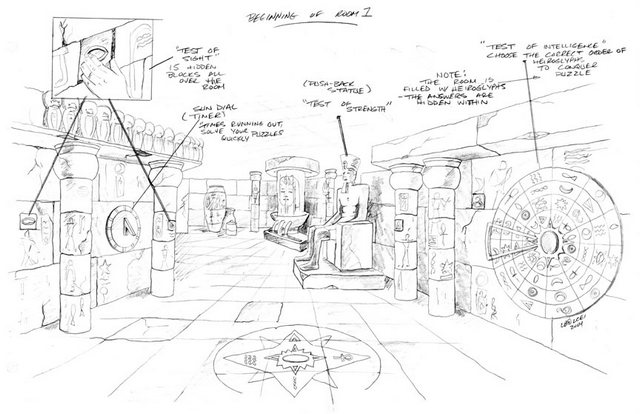 BEGINNING OF ROOM 1
"TEST OF
SIGHT"
15 HIDDEN
BLOCKS ALL
OVER THE
ROOM
SUN DIAL
(-TIMER)
TIMES RUNNING OUT,
SOLVE YOUR
PUZZLES
QUICKLY
(PUSH-BACK
STATUE)
"TEST OF STRENGTH"
NOTE:
THE ROOM IS
FILLED W/ HEIROGLYPHS
- THE ANSWERS ARE
HIDDEN WITHIN
"TEST OF INTELLIGENCE"
CHOOSE THE CORRECT ORDER OF
HEIROGLYPHS
TO CONQUER
PUZZLE